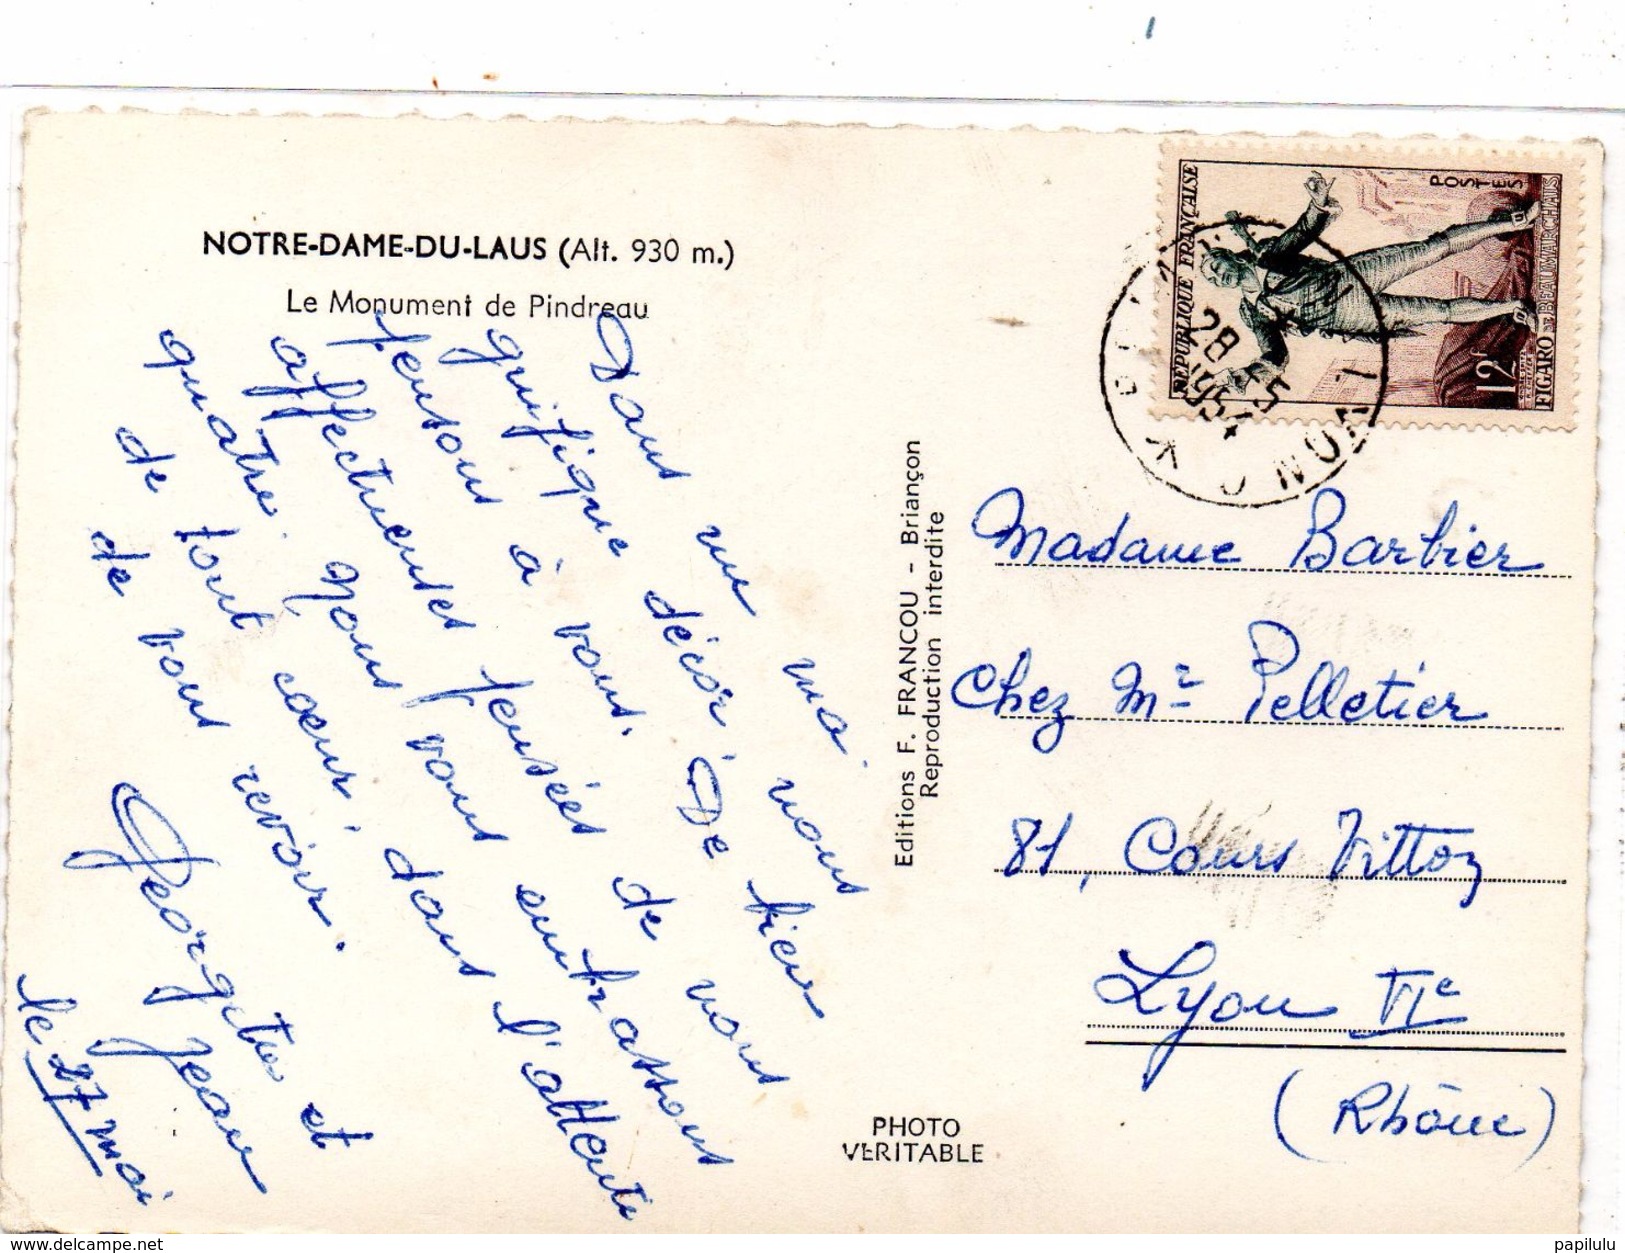 NOTRE-DAME-DU-LAUS (Alt. 930 m.)
Le Monument de Pindreau
Dans un ma
gnifique décor nous
pensons à vous. De bien
affectueuses pensées de nous
quatre. Nous vous embrassons
de tout cœur, dans l'attente
de vous revoir.
Georgette et
Jean
le 27 mai
Editions F. FRANCOU - Briançon
Reproduction interdite
PHOTO
VERITABLE
REPUBLIQUE FRANÇAISE
POSTES
12F
FIGARO DE BEAUMARCHAIS
28-5
1954
Madame Barbier
Chez Mr Pelletier
81, Cours Vitton
Lyon VIe
(Rhône)
www.delcampe.net
papilulu